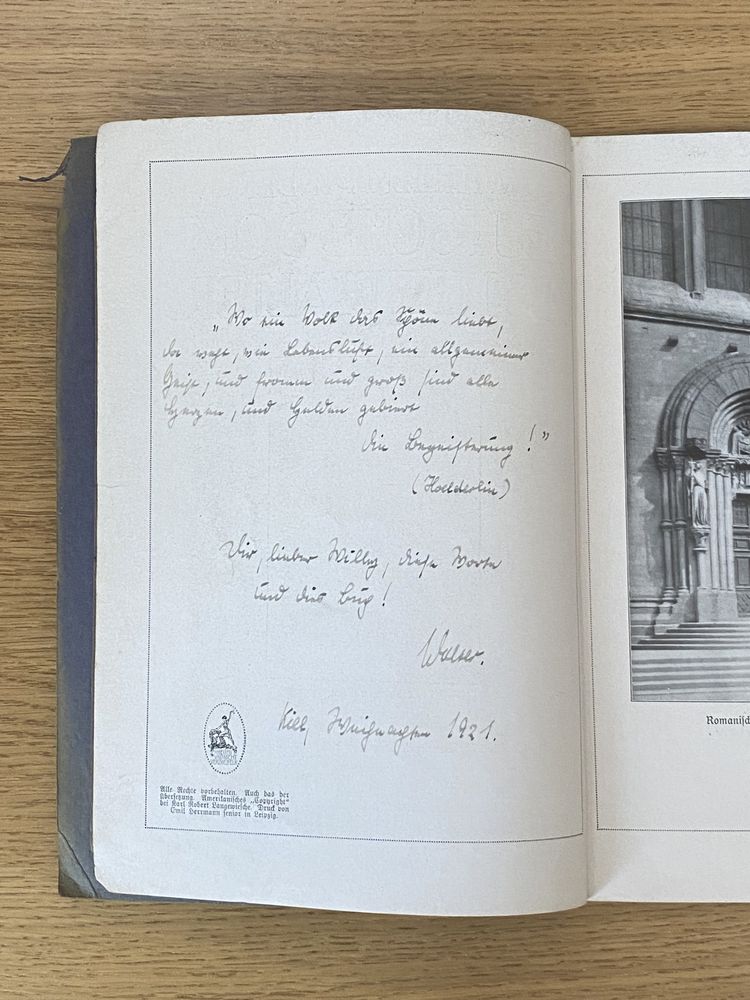 „Wo ein Volk das Schöne liebt,
da weht, wie Lebensluft, ein allgemeiner
Geist, und fromm und groß sind alle
Herzen, und Helden gebiert
die Begeisterung!“
(Hoelderlin)
Dir, lieber Willy, diese Worte
und dies Buch!
Walter.
Kiel, Weihnachten 1921.
Alle Rechte vorbehalten. Auch das der
Übersetzung. Amerikanisches „Copyright“
bei Karl Robert Langewiesche. Druck von
Emil Herrmann senior in Leipzig.
Romanisch